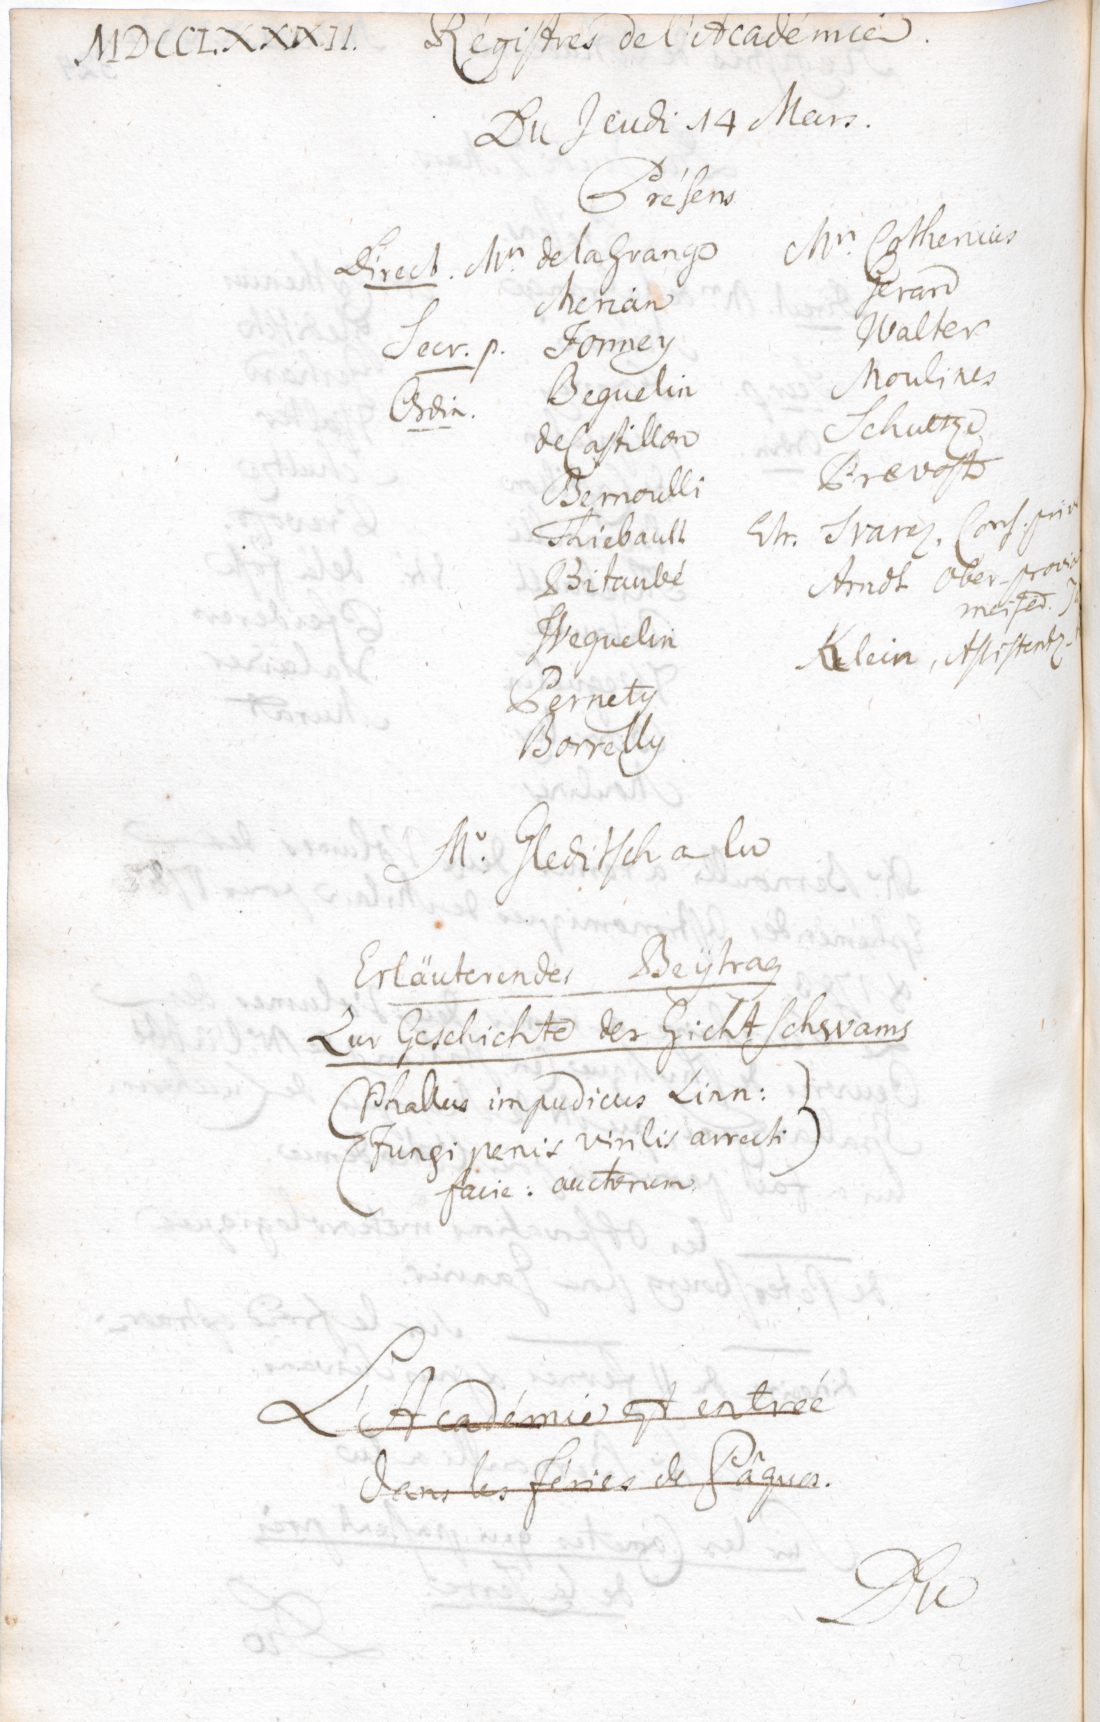 MDCCLXXXII. Régistres de l'Académie.
Du Jeudi 14 Mars.
Présens
Direct. Mrs de la Grange
Merian
Secr. p. Formey
Ordin. Beguelin
de Castillon
Bernoulli
Thiebault
Bitaubé
Weguelin
Pernety
Borrelly
Mrs Cothenius
Gerard
Walter
Moulines
Schultze
Prevost
Etr. Svarez, Cons. priv
Arndt Ober-provin
Klein, Assistentz-
Mr. Gleditsch a lu
Erläuterendes Beÿtrag
Zur Geschichte des Gichtschwams
(Phallus impudicus Linn:)
(Fungi penis virilis arrecti)
facie: auctorum
L'Académie est entrée
dans les féries de Pâques.
Du